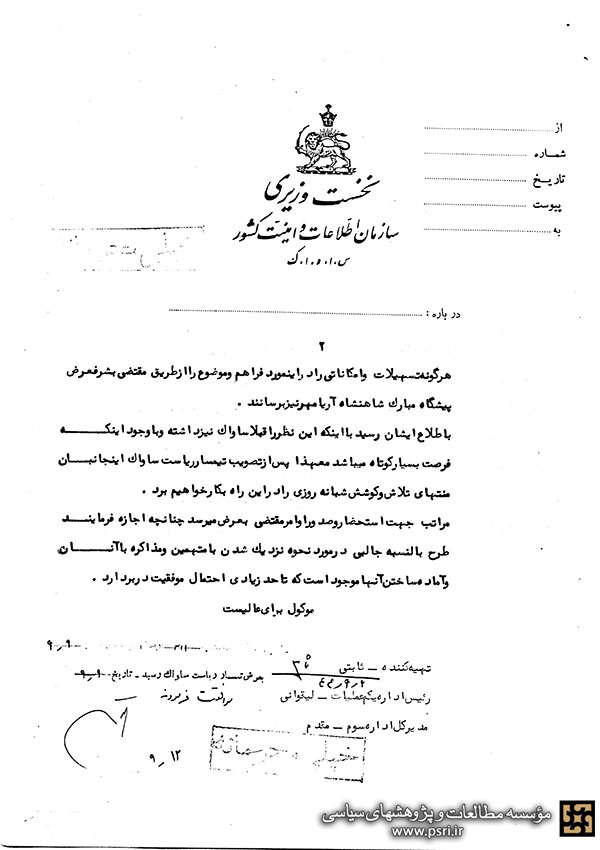 نخست وزیری
سازمان اطلاعات و امنیت کشور
س.ا.و.ا.ک
از
شماره
تاریخ
پیوست
به
درباره :
۲
هرگونه تسهیلات وامکاناتی رادراینمورد فراهم وموضوع راازطریق مقتضی بشرفعرض
پیشگاه مبارك شاهنشاه آریامهرنیزبرسانند .
باطلاع ایشان رسید بااینکه این نظرراقبلاساواك نیزداشته وباوجود اینکـــه
فرصت بسیارکوتاه میباشد معهذا پس ازتصویب تیمسارریاست ساواك اینجانبان
منتهای تلاش وکوشش شبانه روزی رادراین راه بکارخواهیم برد .
مراتب جهت استحضاروصدوراوامرمقتضی بعرض میرسد چنانچه اجازه فرماینــد
طرح بالنسبه جالبی درمورد نحوه نزدیك شدن بامتهمین ومذاکره باآنـــان
وآماده ساختن آنها موجود است که تاحد زیادی احتمال موفقیت دربردارد .
موکول برای عالیست
تهیه کننده ــ ثابتی
بعرض تیمسار ریاست ساواك رسید ــ تاریخ ۹ر۹
رئیس اداره یکم عملیات ــ لیقوانی
مدیرکل اداره سوم ــ مقدم
۹/۱۲
خیلی محرمانه
مؤسسه مطالعات و پژوهشهای سیاسی
www.psri.ir